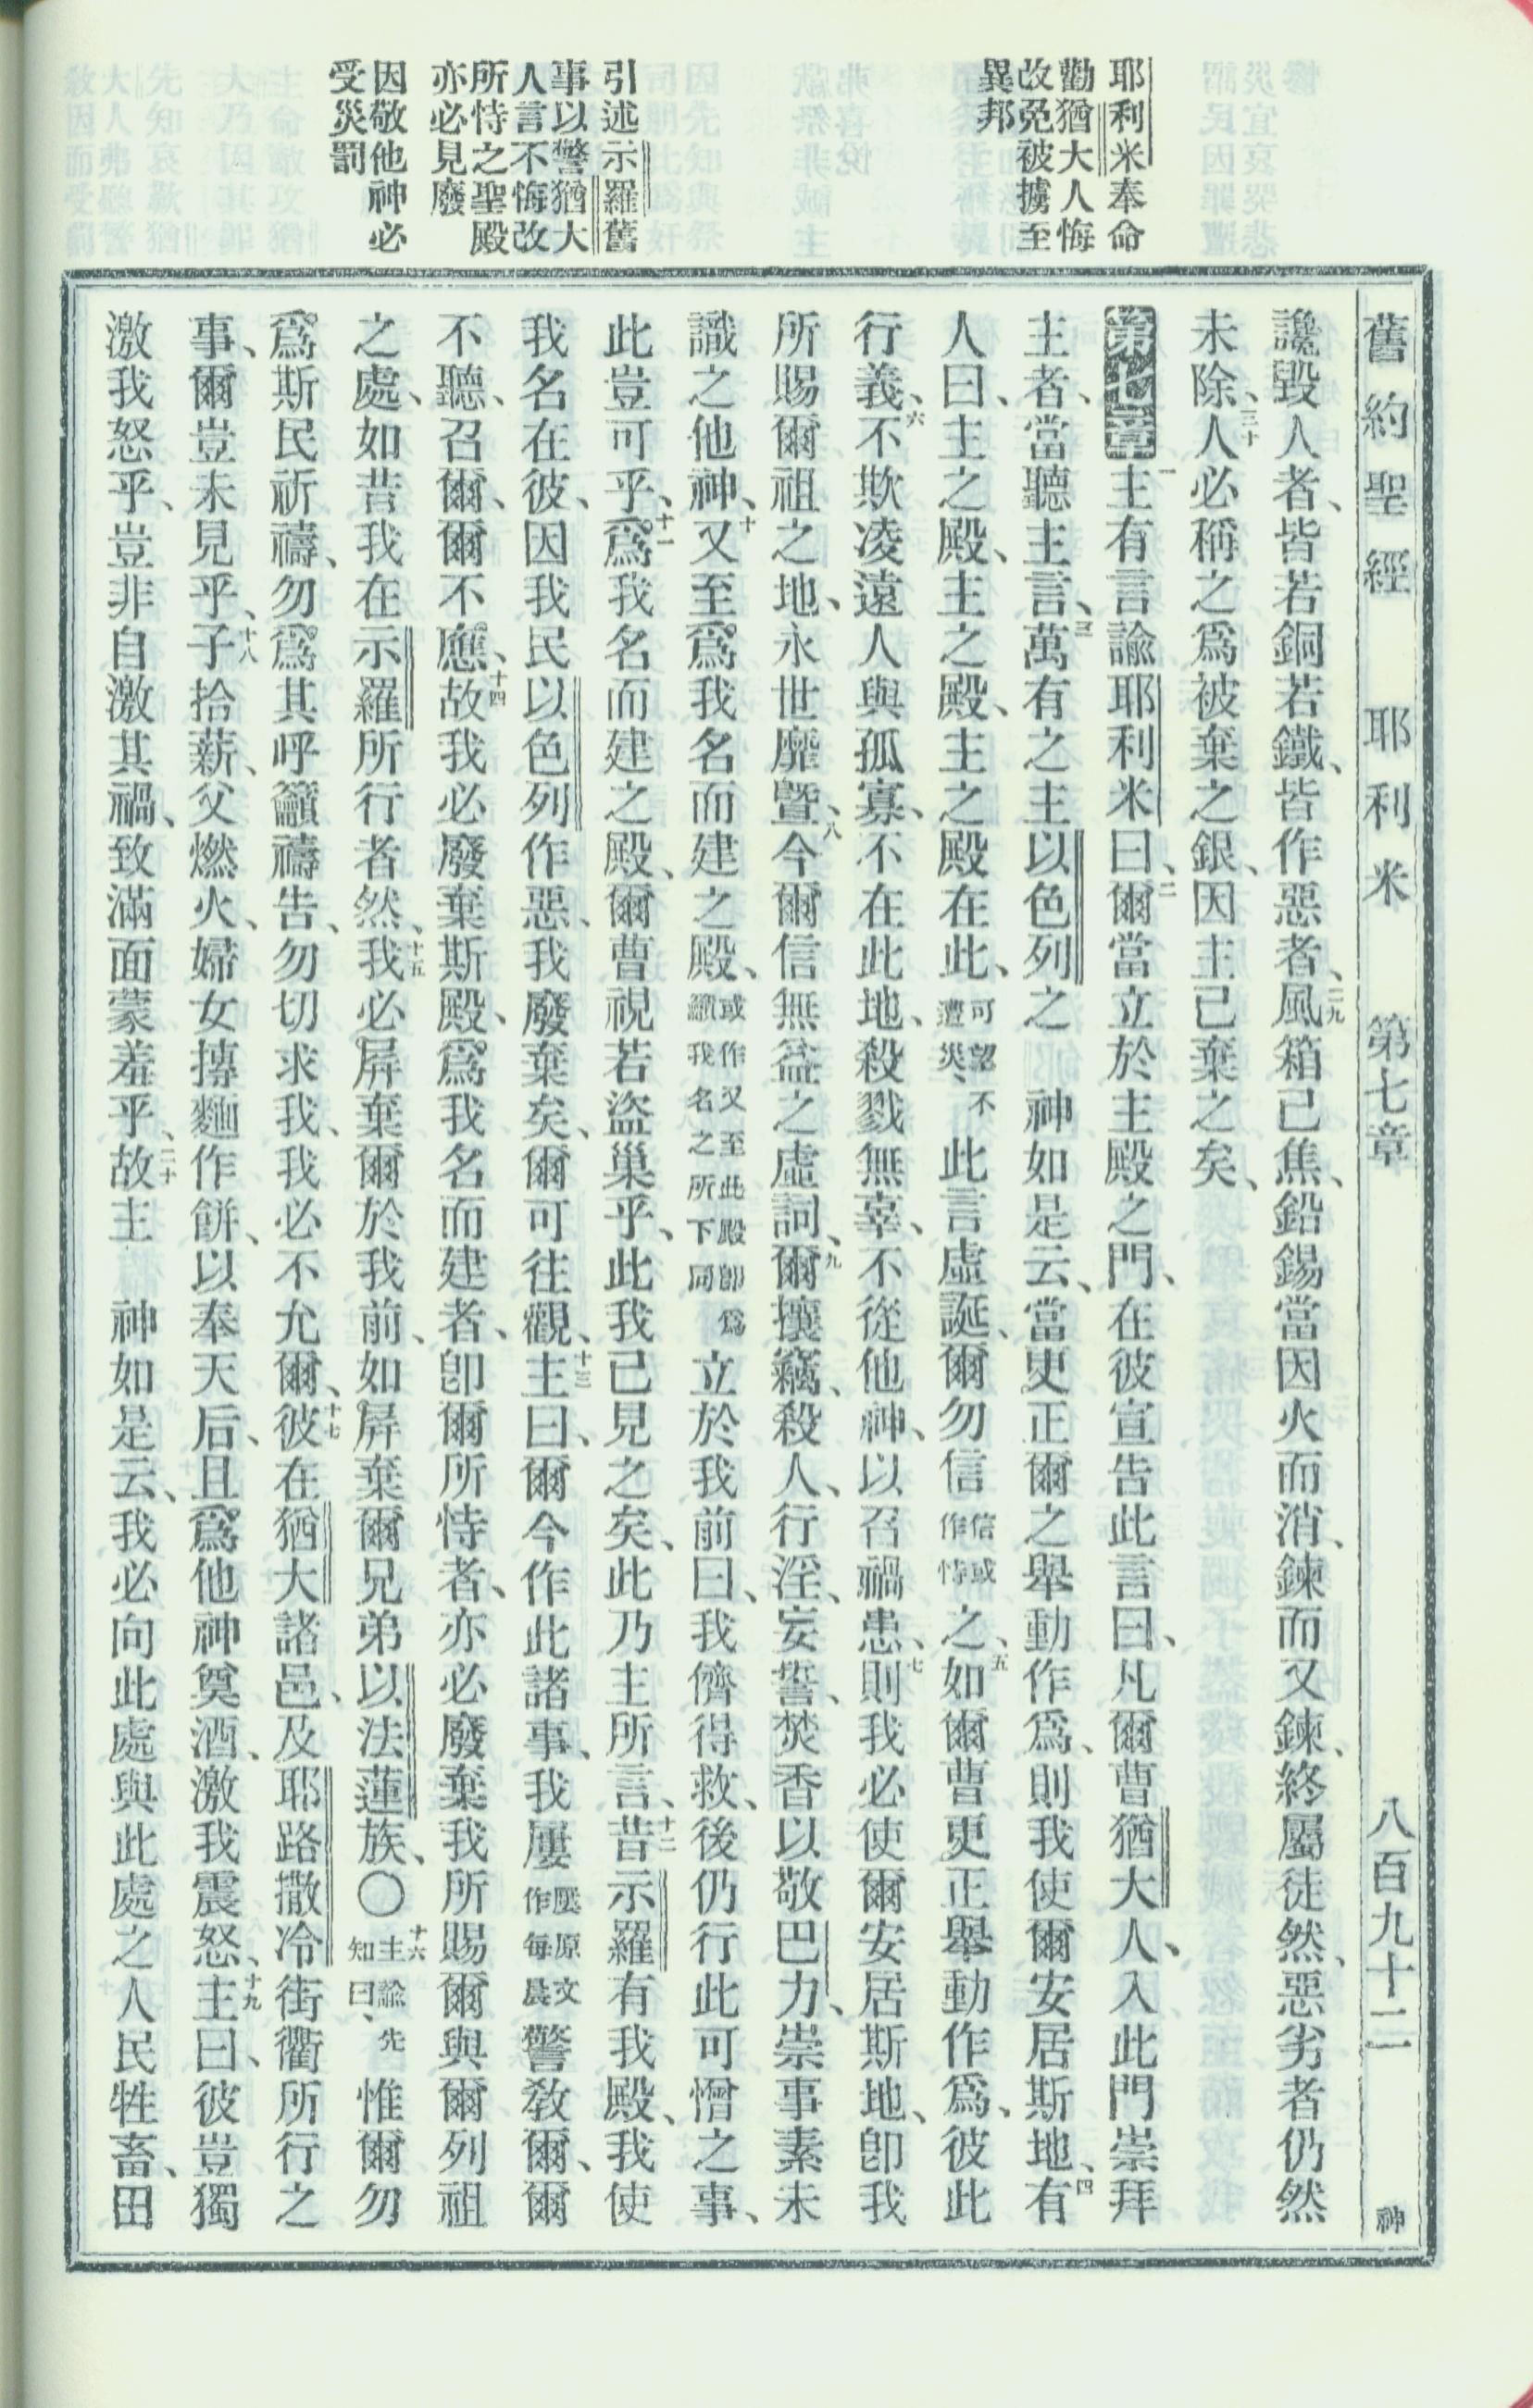 舊約聖經 耶利米 第七章 八百九十二 神
耶利米奉命
勸猶大人悔
改免被擄至
異邦
引述示羅舊
事以警猶大
人言不悔改
所恃之聖殿
亦必見廢
因敬他神必
受災罰
讒毀人者、皆若銅若鐵、皆作惡者、二九風箱已焦、鉛錫當因火而消、鍊而又鍊、終屬徒然、惡劣者仍然
未除、三十人必稱之爲被棄之銀、因主已棄之矣、
第七章一主有言諭耶利米曰、二爾當立於主殿之門、在彼宣告此言曰、凡爾曹猶大人、入此門崇拜
主者、當聽主言、三萬有之主以色列之 神如是云、當更正爾之舉動作爲、則我使爾安居斯地、四有
人曰、主之殿、主之殿、主之殿在此、可望不遭災、此言虛誕、爾勿信信或作恃之、五如爾曹更正舉動作爲、彼此
行義、六不欺凌遠人與孤寡、不在此地、殺戮無辜、不從他神、以召禍患、七則我必使爾安居斯地、卽我
所賜爾祖之地、永世靡曁、八今爾信無益之虛詞、九爾攘竊、殺人、行淫、妄誓、焚香以敬巴力、崇事素未
識之他神、十又至爲我名而建之殿、或作又至此殿卽爲籲我名之所下同立於我前曰、我儕得救、後仍行此可憎之事、
此豈可乎、十一爲我名而建之殿、爾曹視若盜巢乎、此我已見之矣、此乃主所言、十二昔示羅有我殿、我使
我名在彼、因我民以色列作惡、我廢棄矣、爾可往觀、十三主曰、爾今作此諸事、我屢屢原文作每晨警敎爾、爾
不聽、召爾、爾不應、十四故我必廢棄斯殿、爲我名而建者、卽爾所恃者、亦必廢棄我所賜爾與爾列祖
之處、如昔我在示羅所行者然、十五我必屛棄爾於我前、如屛棄爾兄弟以法蓮族、〇十六主諭先知曰、惟爾勿
爲斯民祈禱、勿爲其呼籲禱告、勿切求我、我必不允爾、十七彼在猶大諸邑、及耶路撒冷街衢所行之
事、爾豈未見乎、十八子拾薪、父燃火、婦女摶麵作餅、以奉天后、且爲他神奠酒、激我震怒、十九主曰、彼豈獨
激我怒乎、豈非自激其禍、致滿面蒙羞乎、二十故主 神如是云、我必向此處與此處之人民牲畜、田